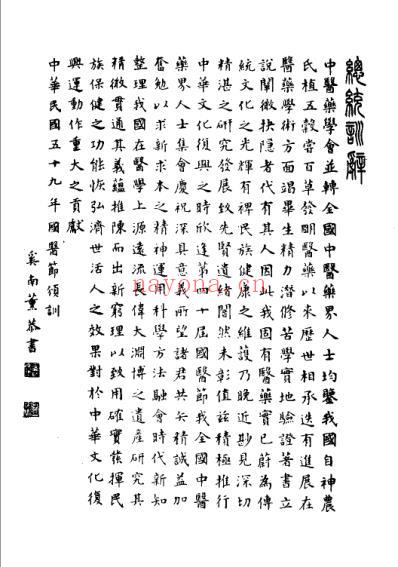 總統訓辭
中醫藥學會並轉全國中醫藥界人士均鑒我國自神農
氏植五穀嘗百草發明醫藥以來歷世相承迭有進展在
醫藥學術方面竭畢生精力潛修苦學實地驗證著書立
說闡微抉隱者代有其人因此我固有醫藥實已蔚為傳
統文化之光輝有裨民族健康之維護乃晚近尠見深切
精湛之研究發展致先賢遺緒闇然未彰值茲積極推行
中華文化復興之時欣逢第四十屆國醫節我全國中醫
藥界人士集會慶祝深具意義所望諸君共矢精誠益加
奮勉以求新求本之精神運用科學方法融會時代新知
整理我國在醫學上源遠流長偉大淵博之遺產研究其
精微貫通其義蘊推陳而出新窮理以致用確實發揮民
族保健之功能恢弘濟世活人之效果對於中華文化復
興運動作重大之貢獻
中華民國五十九年國醫節頒訓
奚南薰恭書
nayona.cn